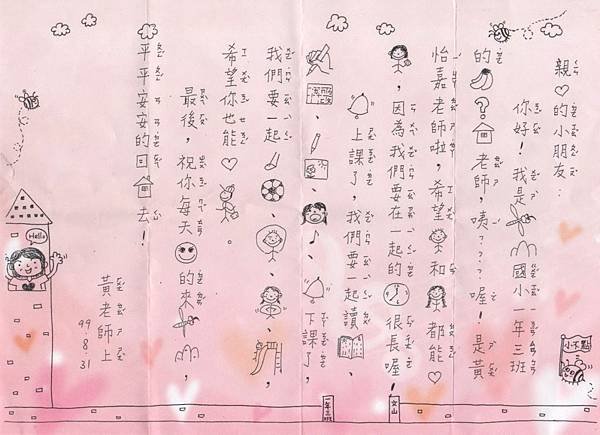 親♡的小朋友：
你好！我是國小一年三班
的？老師，咦？？？喔！是黃
怡嘉老師啦，希望和都能♡
，因為我們要在一起的很長喔！
上課了，我們要一起讀、
、、♪、下課了，
我們要一起、、、，
希望你也能♡。
最後，祝你每天的來，
平平安安的回去！
黃老師上
99.8.31
Hello
小不點
文山
一年三班